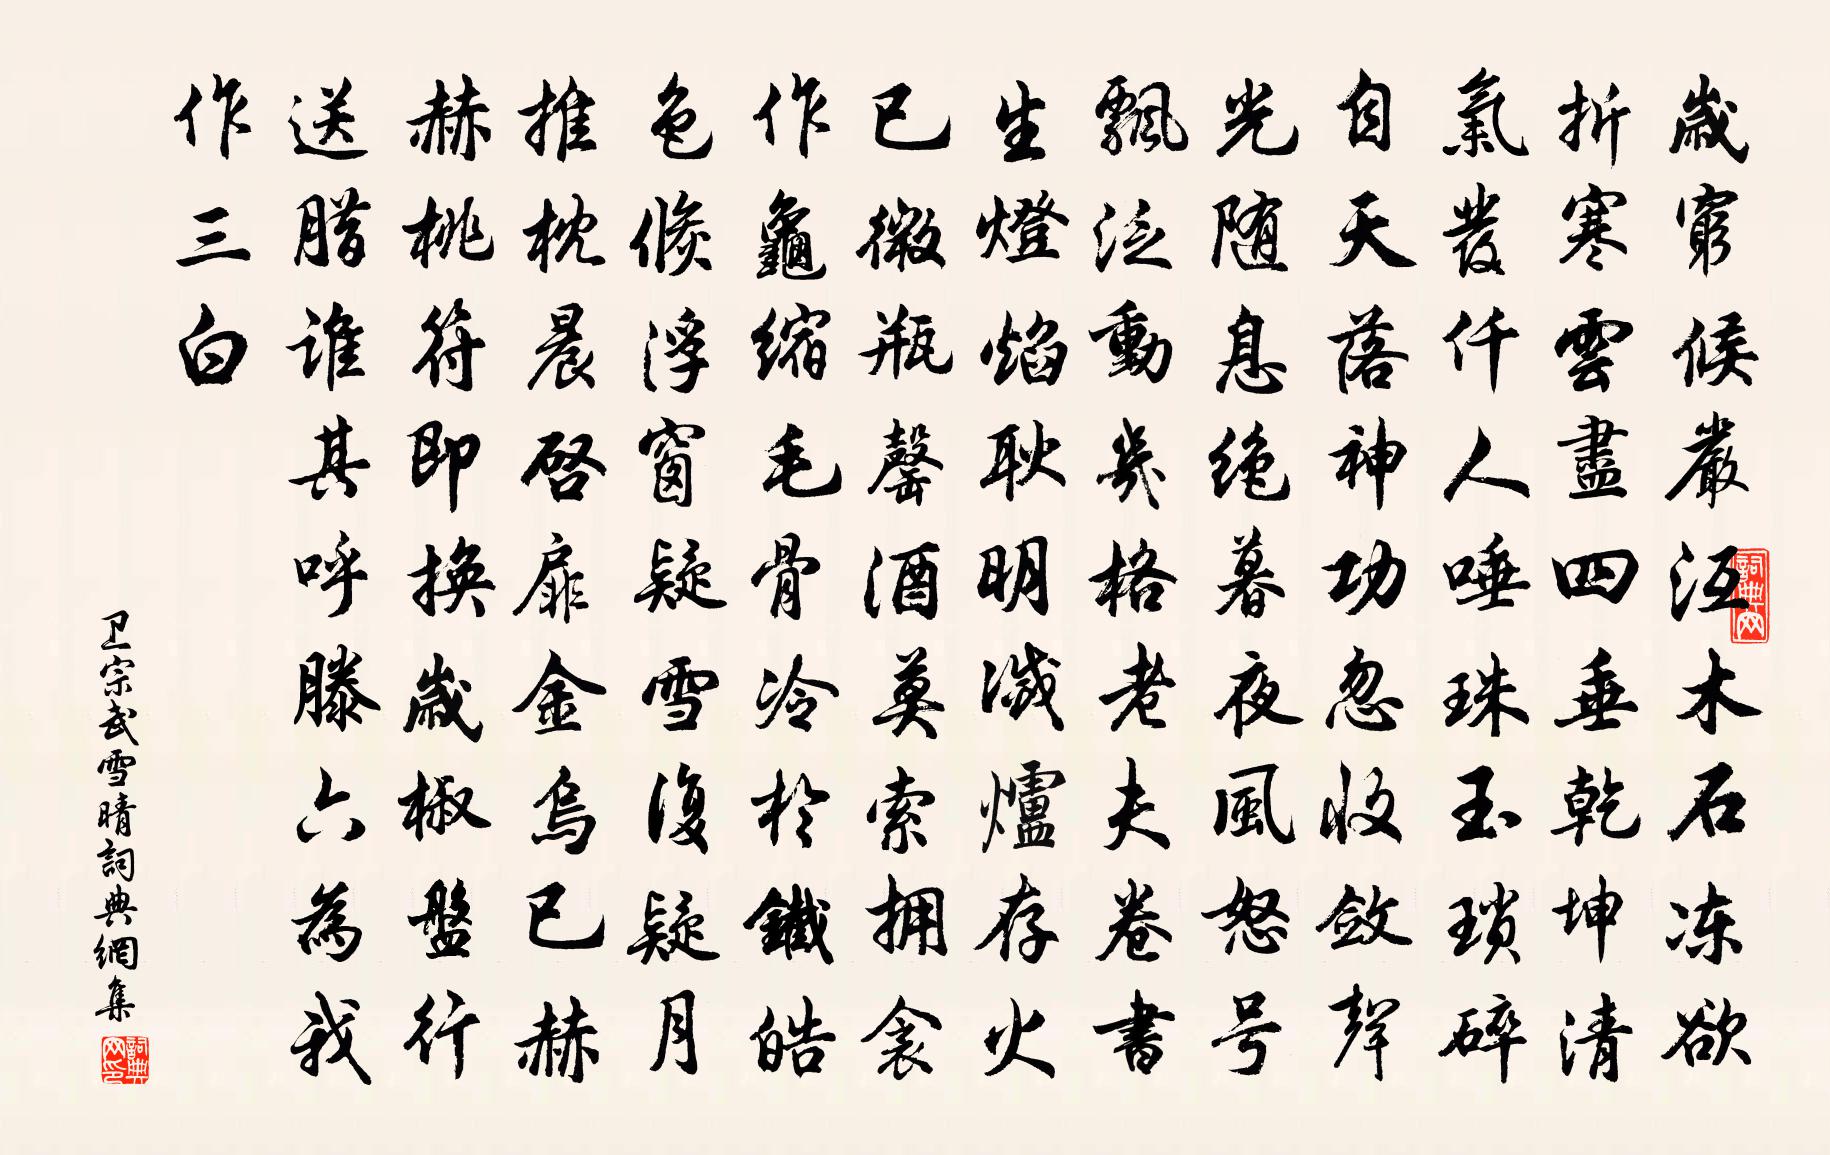 歲窮候嚴沍木石冻欲
折寒雲盡四垂乾坤清
氣發仟人唾珠玉瑣碎
自天落神功忽收斂聲
光随息绝暮夜風怒号
飄泛動幾格老夫卷書
生燈焰耿明滅爐存火
已微瓶罄酒莫索拥衾
作龜缩毛骨冷於鐵皓
色倏浮窗疑雪復疑月
推枕晨啓扉金烏已赫
赫桃符即換歲椒盤行
送腊谁其呼滕六為我
作三白
卫宗武雪晴詞典網集
詞典网
詞典网印